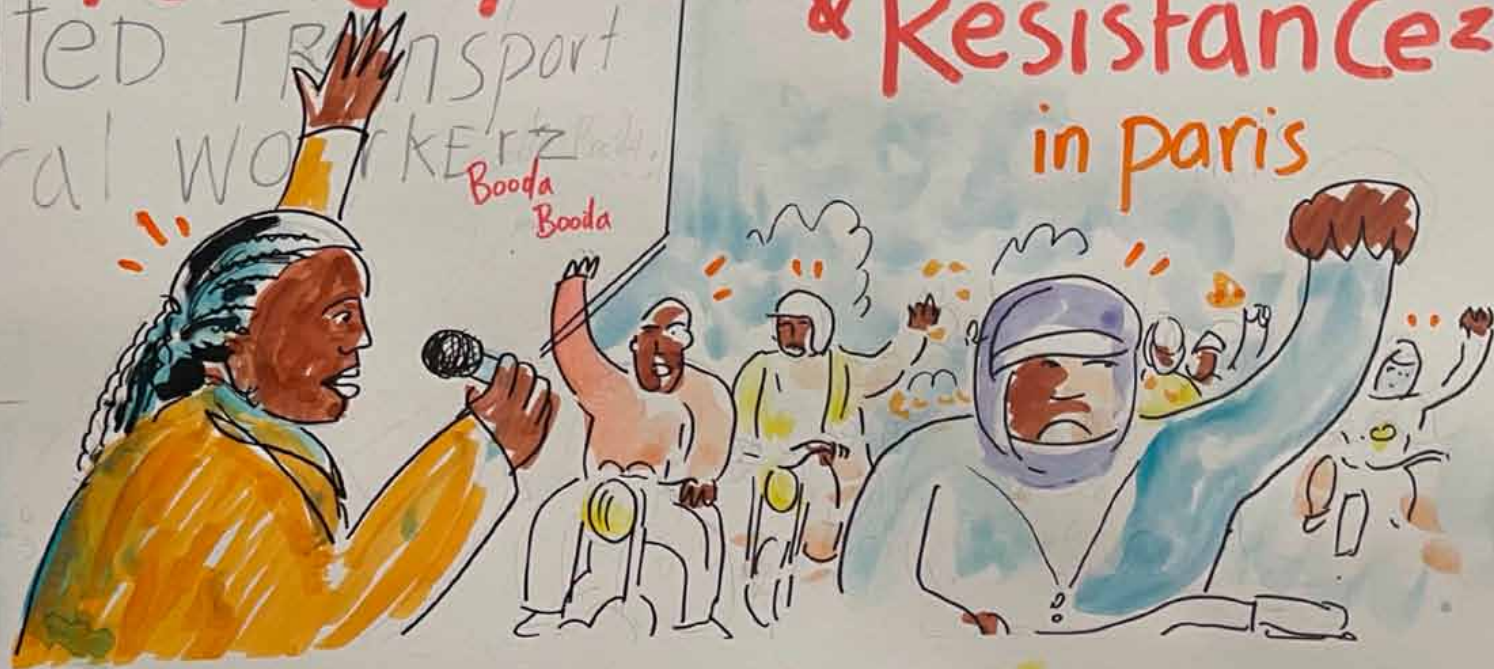 teD TRansport
ral workErz
Booda
Booda
& Resistancez
in paris